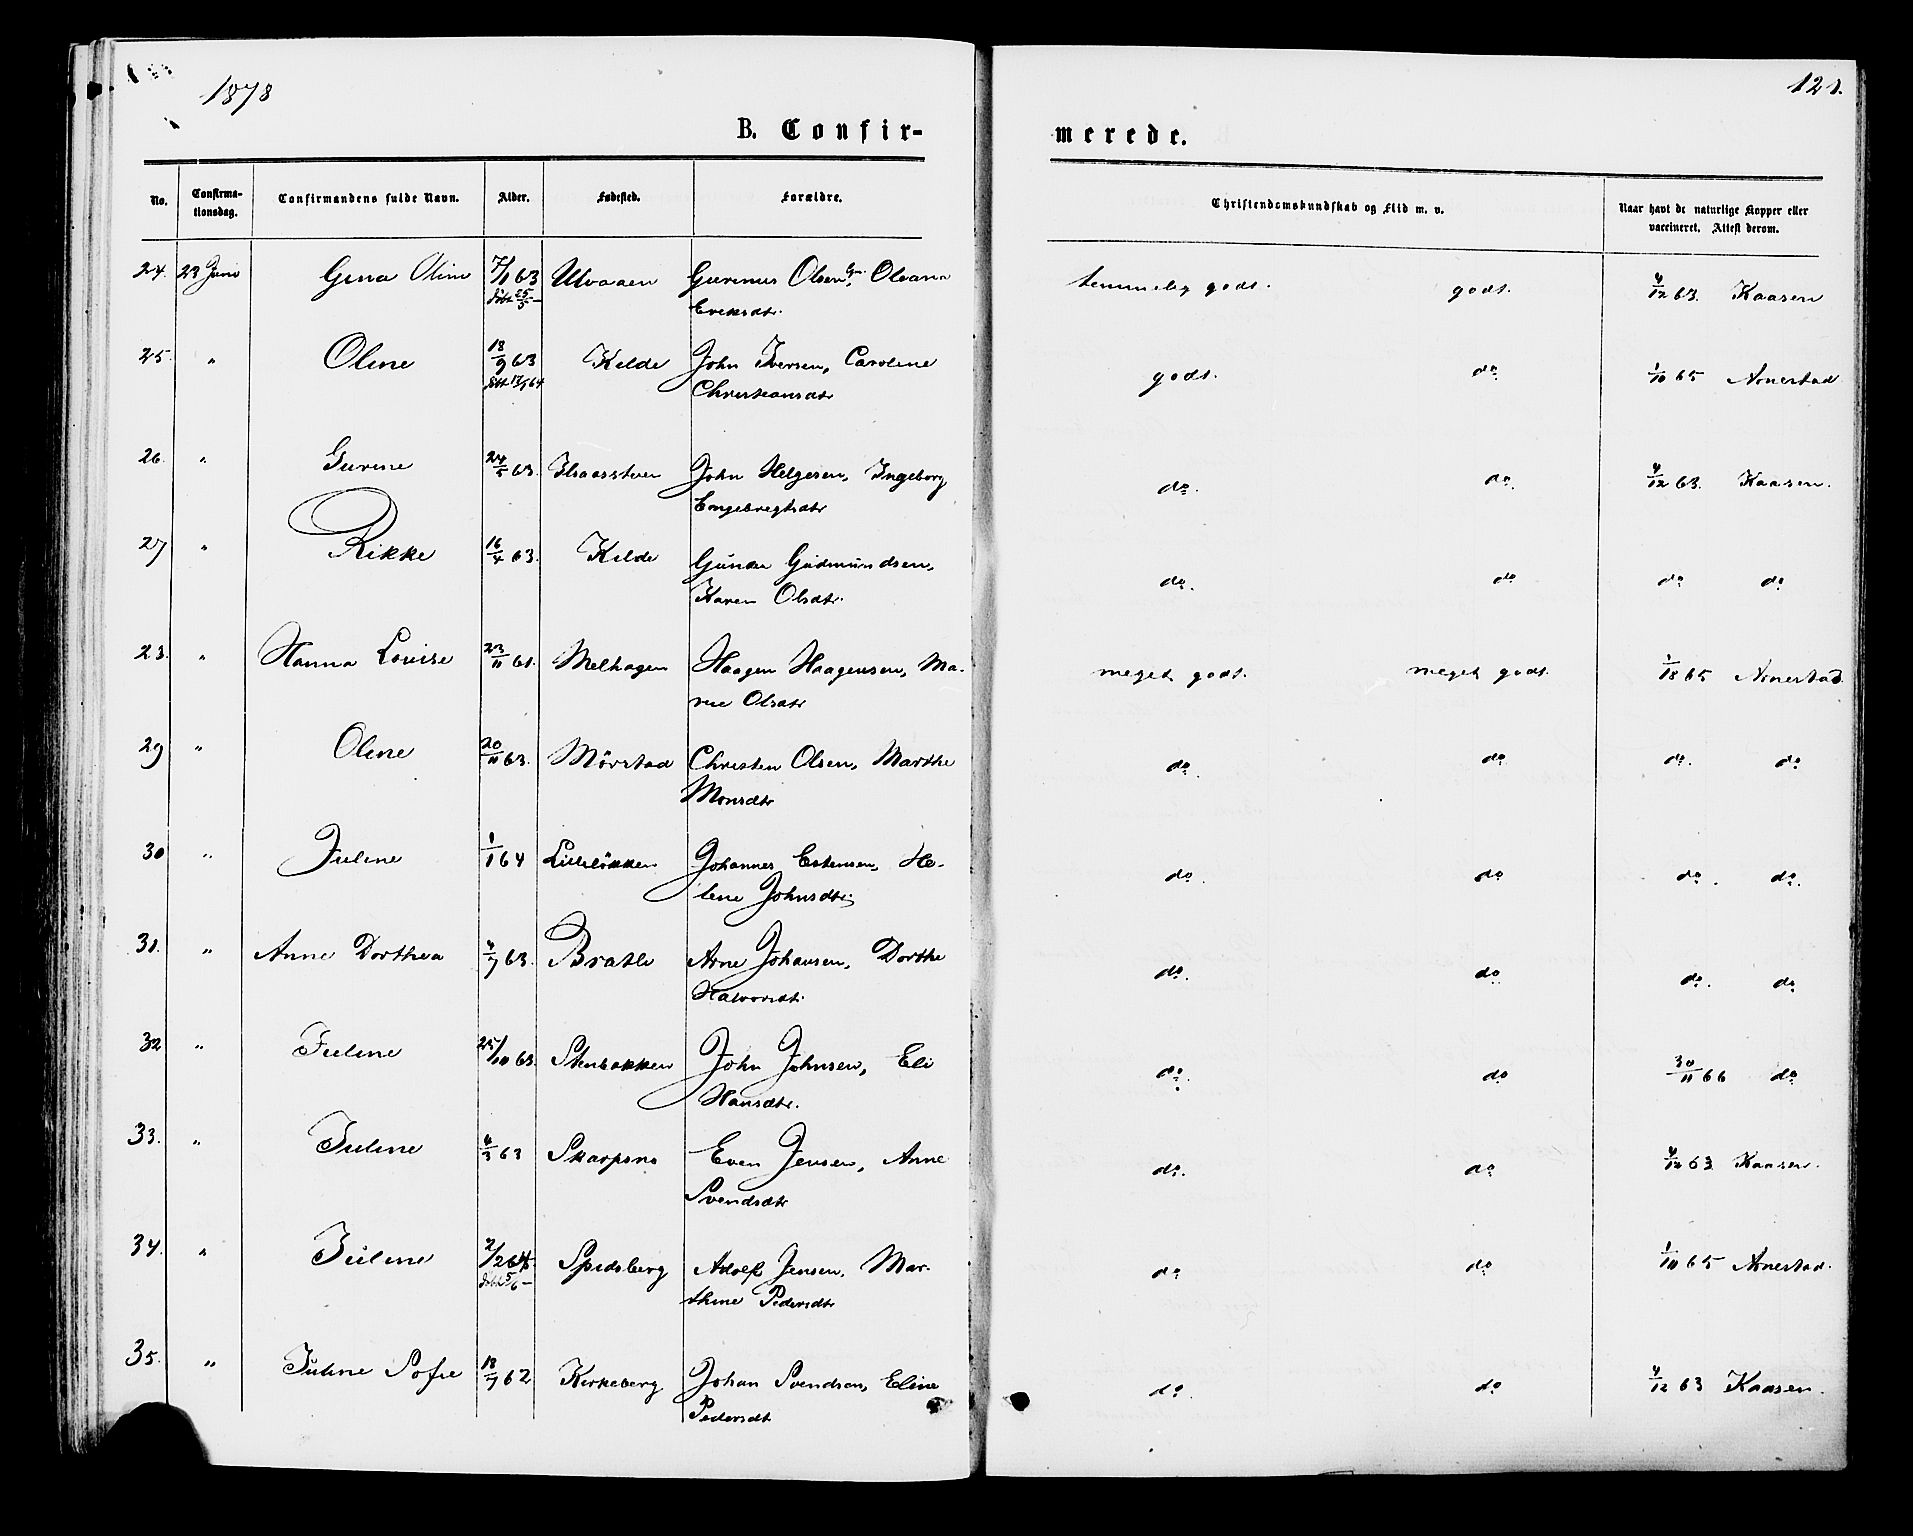 1878
121.
B. Confir-
merede.
No. Confirma-tionsdag. Confirmandens fulde Navn. Alder. Fødested. Forældre. Christendomskundskab og Flid m. v. Naar havt de naturlige Kopper eller vaccineret. Attest derom.
24. 23 Juni Gina Oline 7/1 63 Ulvaaen Gurinus Olsen, Oleana temmelig godt. godt. 4/12 63. Kaasen
døbt 25/5 — Eriksdtr.
25. " Oline 18/9 63 Kilde John Iversen, Caroline godt. do 1/10 65 Arnestad
Christiansdtr
26. " Gurine 24/5 63. John Helgesen, Ingeborg do. do. 4/12 63. Kaasen.
Engebregtsdtr
27 " Rikke 16/4 63. Kilde Gunder Gudmundsen, do. do do do
Karen Olsdtr.
28. " Hanna Lovise 23/11 61. Melhagen Haagen Haagensen, Ma- meget godt. meget godt. 1/10 65 Arnestad
rie Olsdtr
29 " Oline 20/11 63. Mørstad Christen Olsen, Marthe do do do. do
Monsdtr
30 " Juline 1/1 64 Lilleløkken Johannes Estensen, He- do. do do. do.
lene Johnsdtr.
31. " Anne Dorthea 4/7 63. Bratli Arne Johansen, Dorthe do. do do. do
Halvorsdt.
32 " Juline 25/10 63. Stenbakken John Johnsen, Eli do. do 30/11 66 do
Hansdtr.
33. " Juline 4/3 63 Skarpsno Even Jensen, Anne do. do 4/12 63 Kaasen.
Svendsdtr
34. " Juline 2/2 64 Spidsberg Adolf Jensen, Mar- do do 1/10 65 Arnestad.
døbt 5/6 — thine Pedersdtr
35. " Juline Sofie 18/7 62 Kirkeberg Johan Svendsen, Eline do. do 4/12 63 Kaasen.
Pedersdt